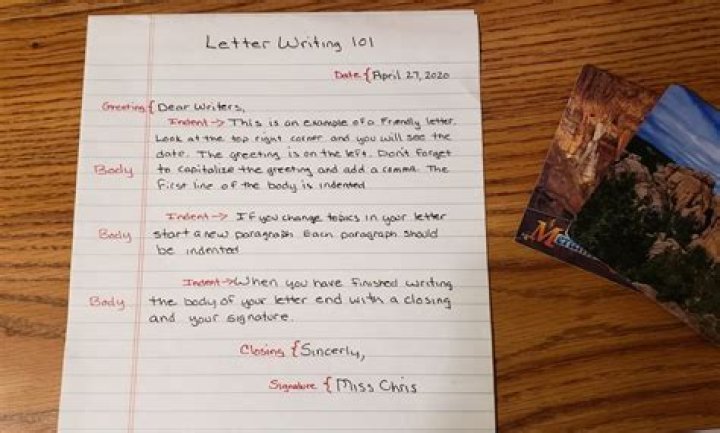 Letter Writing 101
Date { April 27, 2020
Greeting { Dear Writers,
Indent -> This is an example of a friendly letter.
Look at the top right corner and you will see the
date. The greeting is on the left. Don't forget
Body to capitalize the greeting and add a comma. The
first line of the body is indented
Indent -> If you change topics in your letter
Body start a new paragraph. Each paragraph should
be indented
Indent -> When you have finished writing
Body the body of your letter end with a closing
and your signature.
Closing { Sincerly,
Signature { Miss Chris